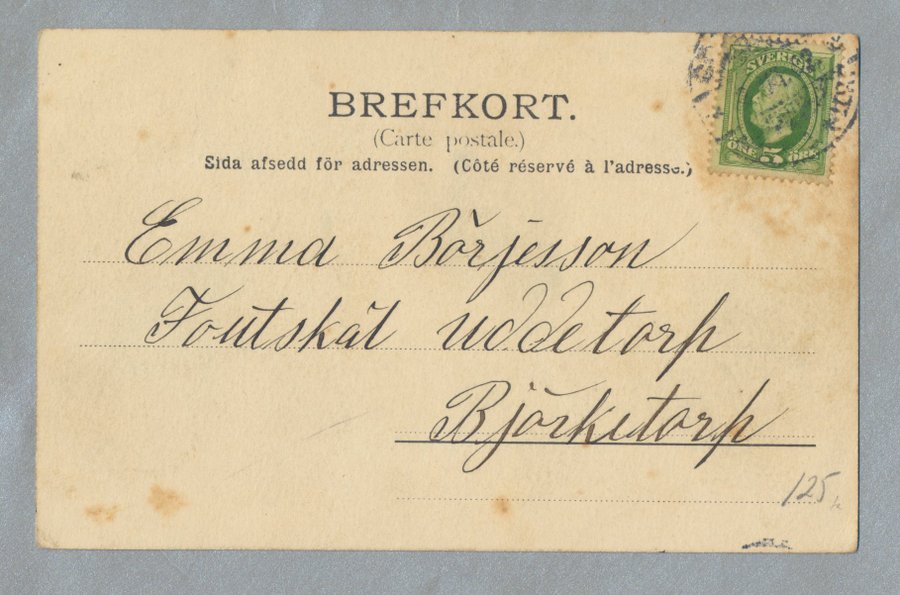 BREFKORT.
(Carte postale.)
Sida afsedd för adressen. (Côté réservé à l'adresse.)
SVERIGE
ÖRE 5 ÖRE
Emma Börjesson
Foutskäl uddetorp
Björketorp
125